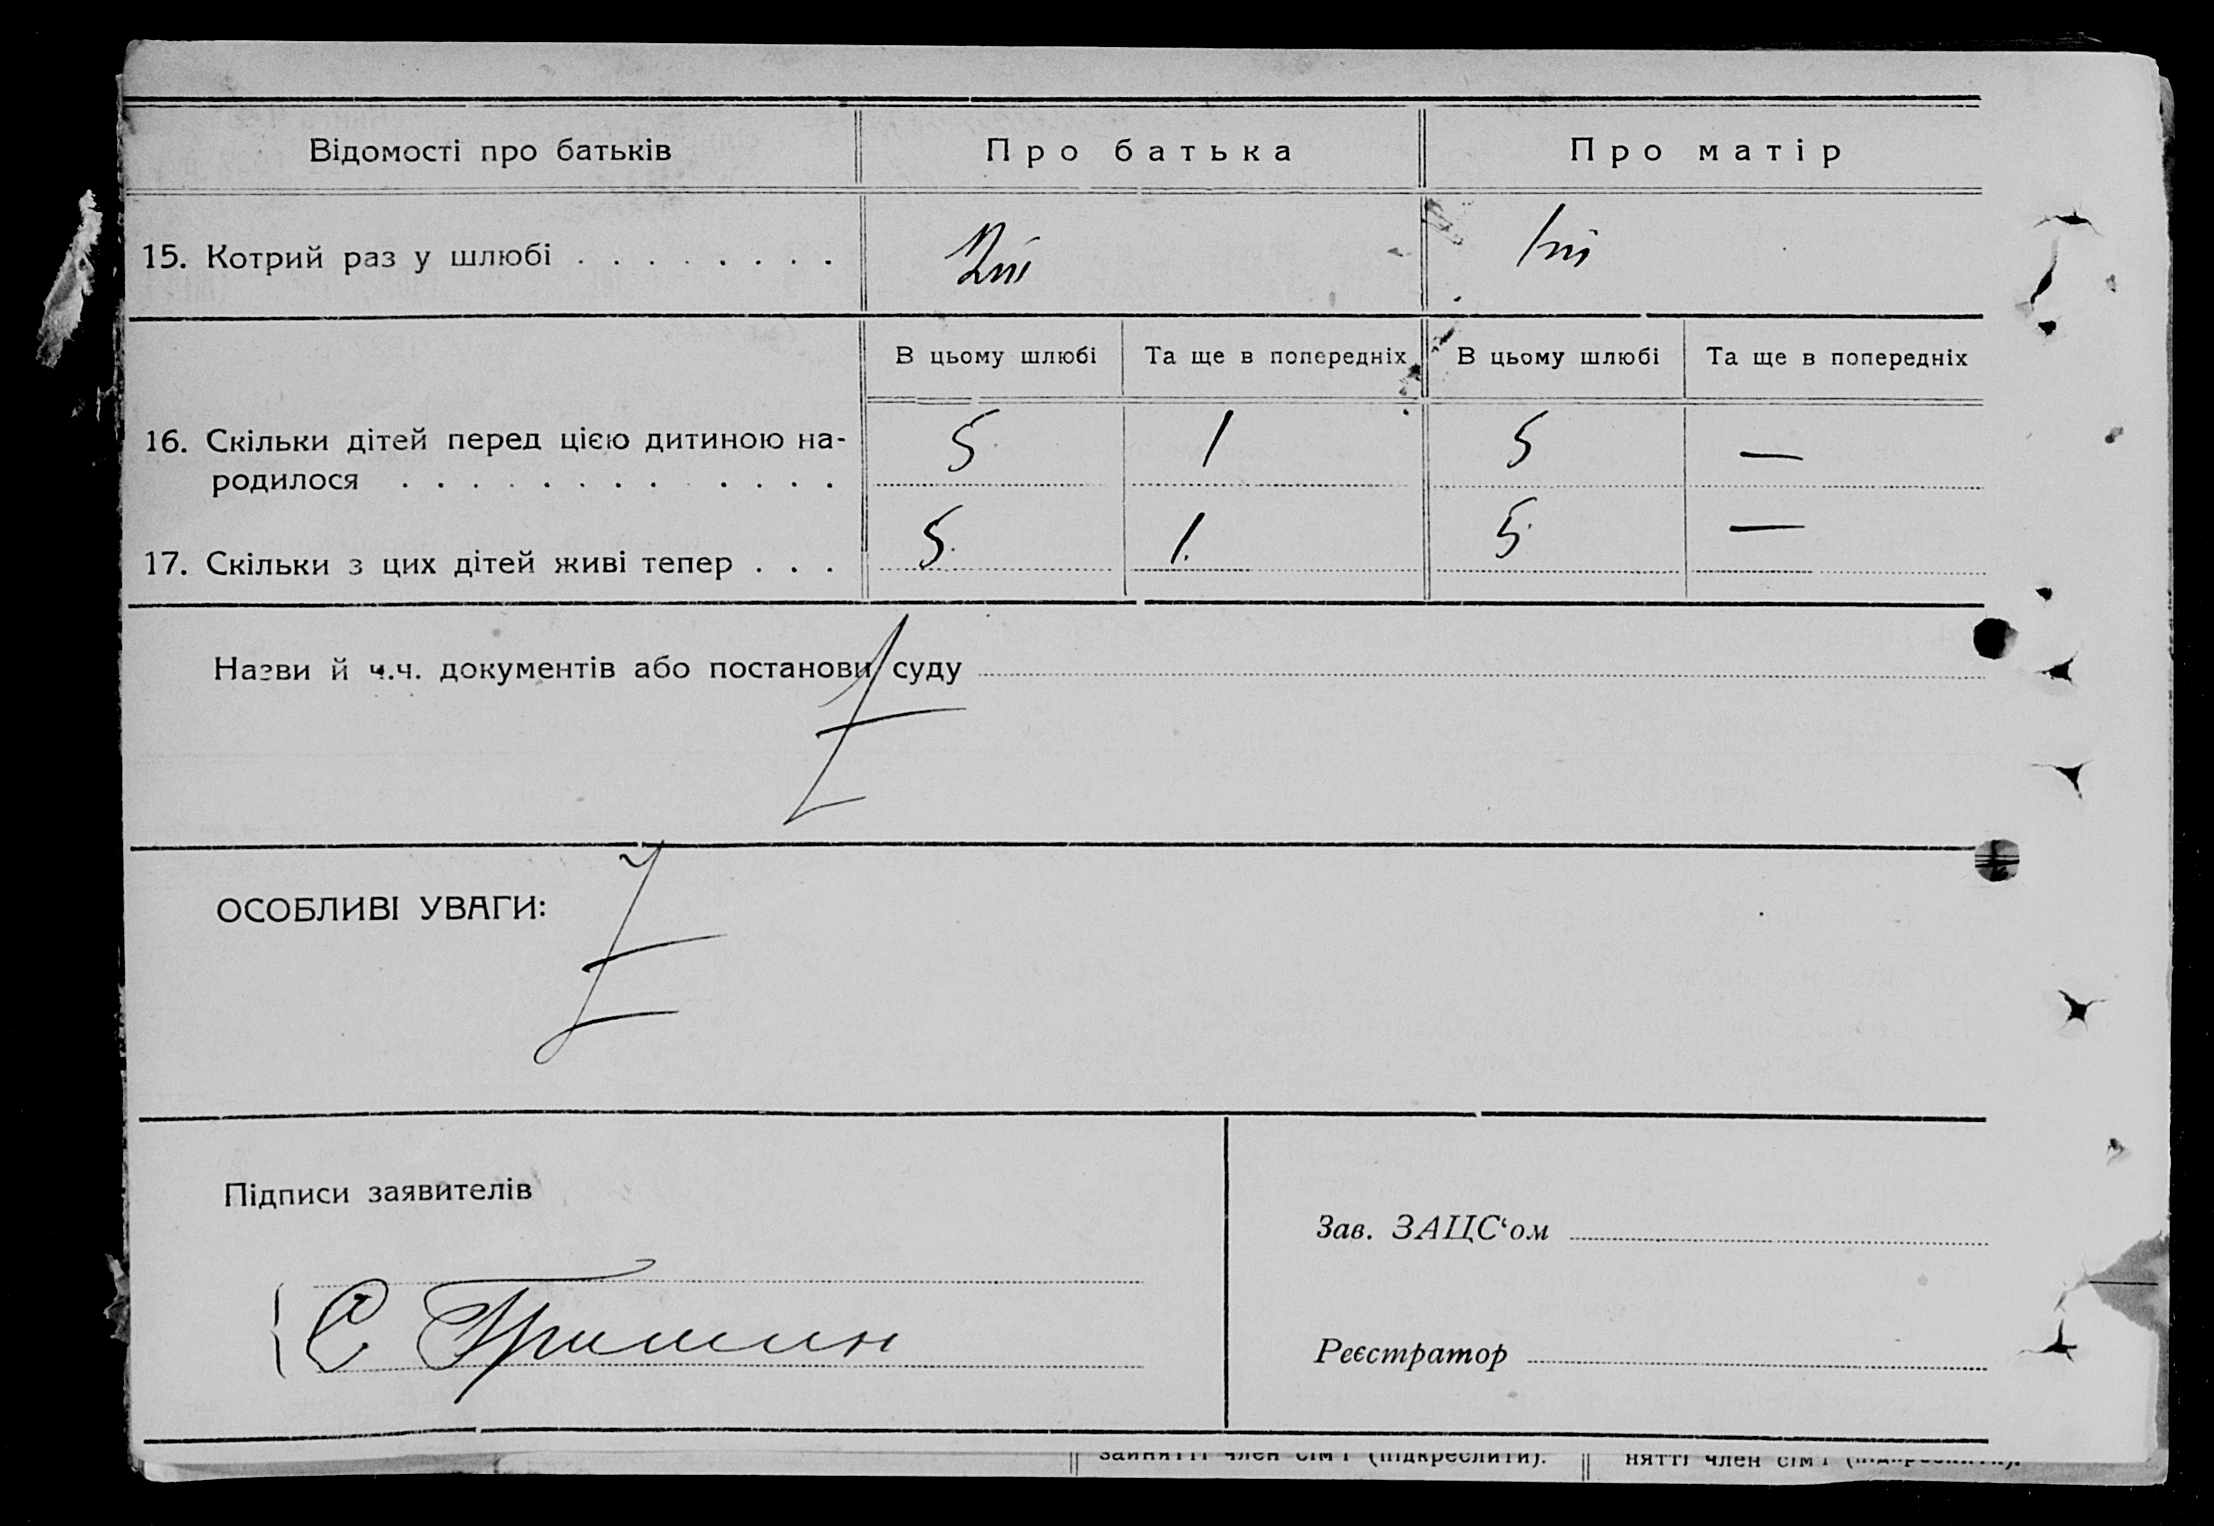 Відомості про батьків Про батька Про матір
15. Котрий раз у шлюбі . . . . . . . . 2ий 1ий
В цьому шлюбі Та ще в попередніх В цьому шлюбі Та ще в попередніх
16. Скільки дітей перед цією дитиною на-
родилося . . . . . . . . . . . . . 5 1 5 —
17. Скільки з цих дітей живі тепер . . . 5. 1. 5 —
Назви й ч.ч. документів або постанови суду
ОСОБЛИВІ УВАГИ:
Підписи заявителів
Зав. ЗАЦС‘ом
С Гришин
Реєстратор
зайнятті член сім'ї (підкреслити). нятті член сім'ї